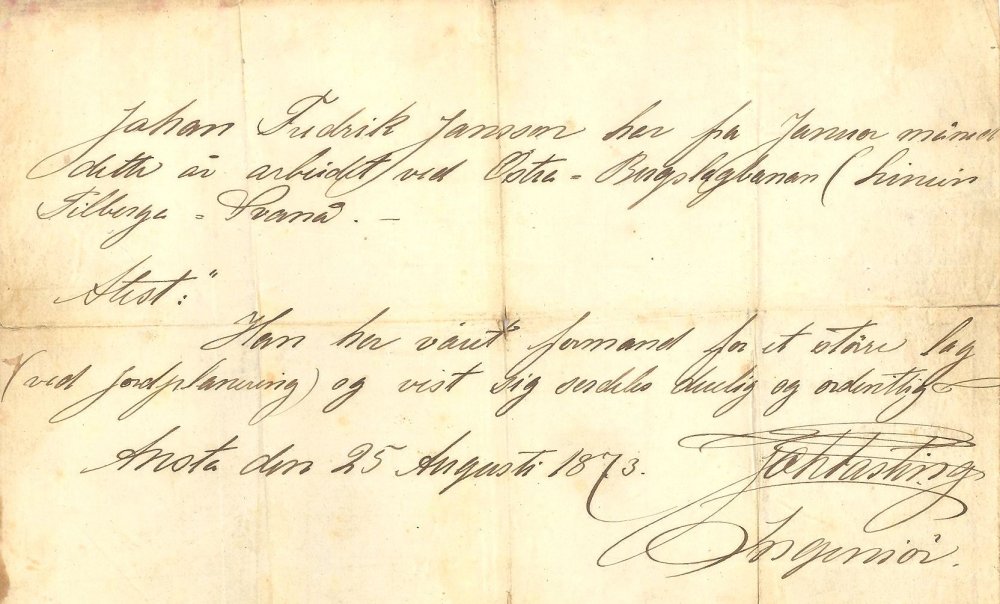 Johan Fredrik Jansson har fra Januar måned
dette år arbeidet ved Östra-Bergslagbanan (Linien
Tilberga - Svanå. -
Atest:"
Han har været formand for et större lag
(ved jordplanering) og vist sig serdeles duelig og ordentlig
Ansta den 25 Augusti 1873.
Ingeniör.